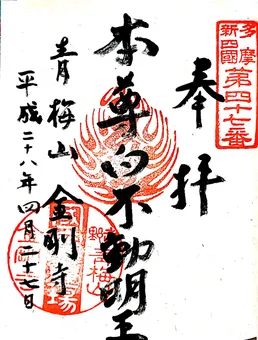 多摩
新四國
第四十七番
奉拝
本尊白不動明王
青梅山
金剛寺
平成二十八年四月二十七日